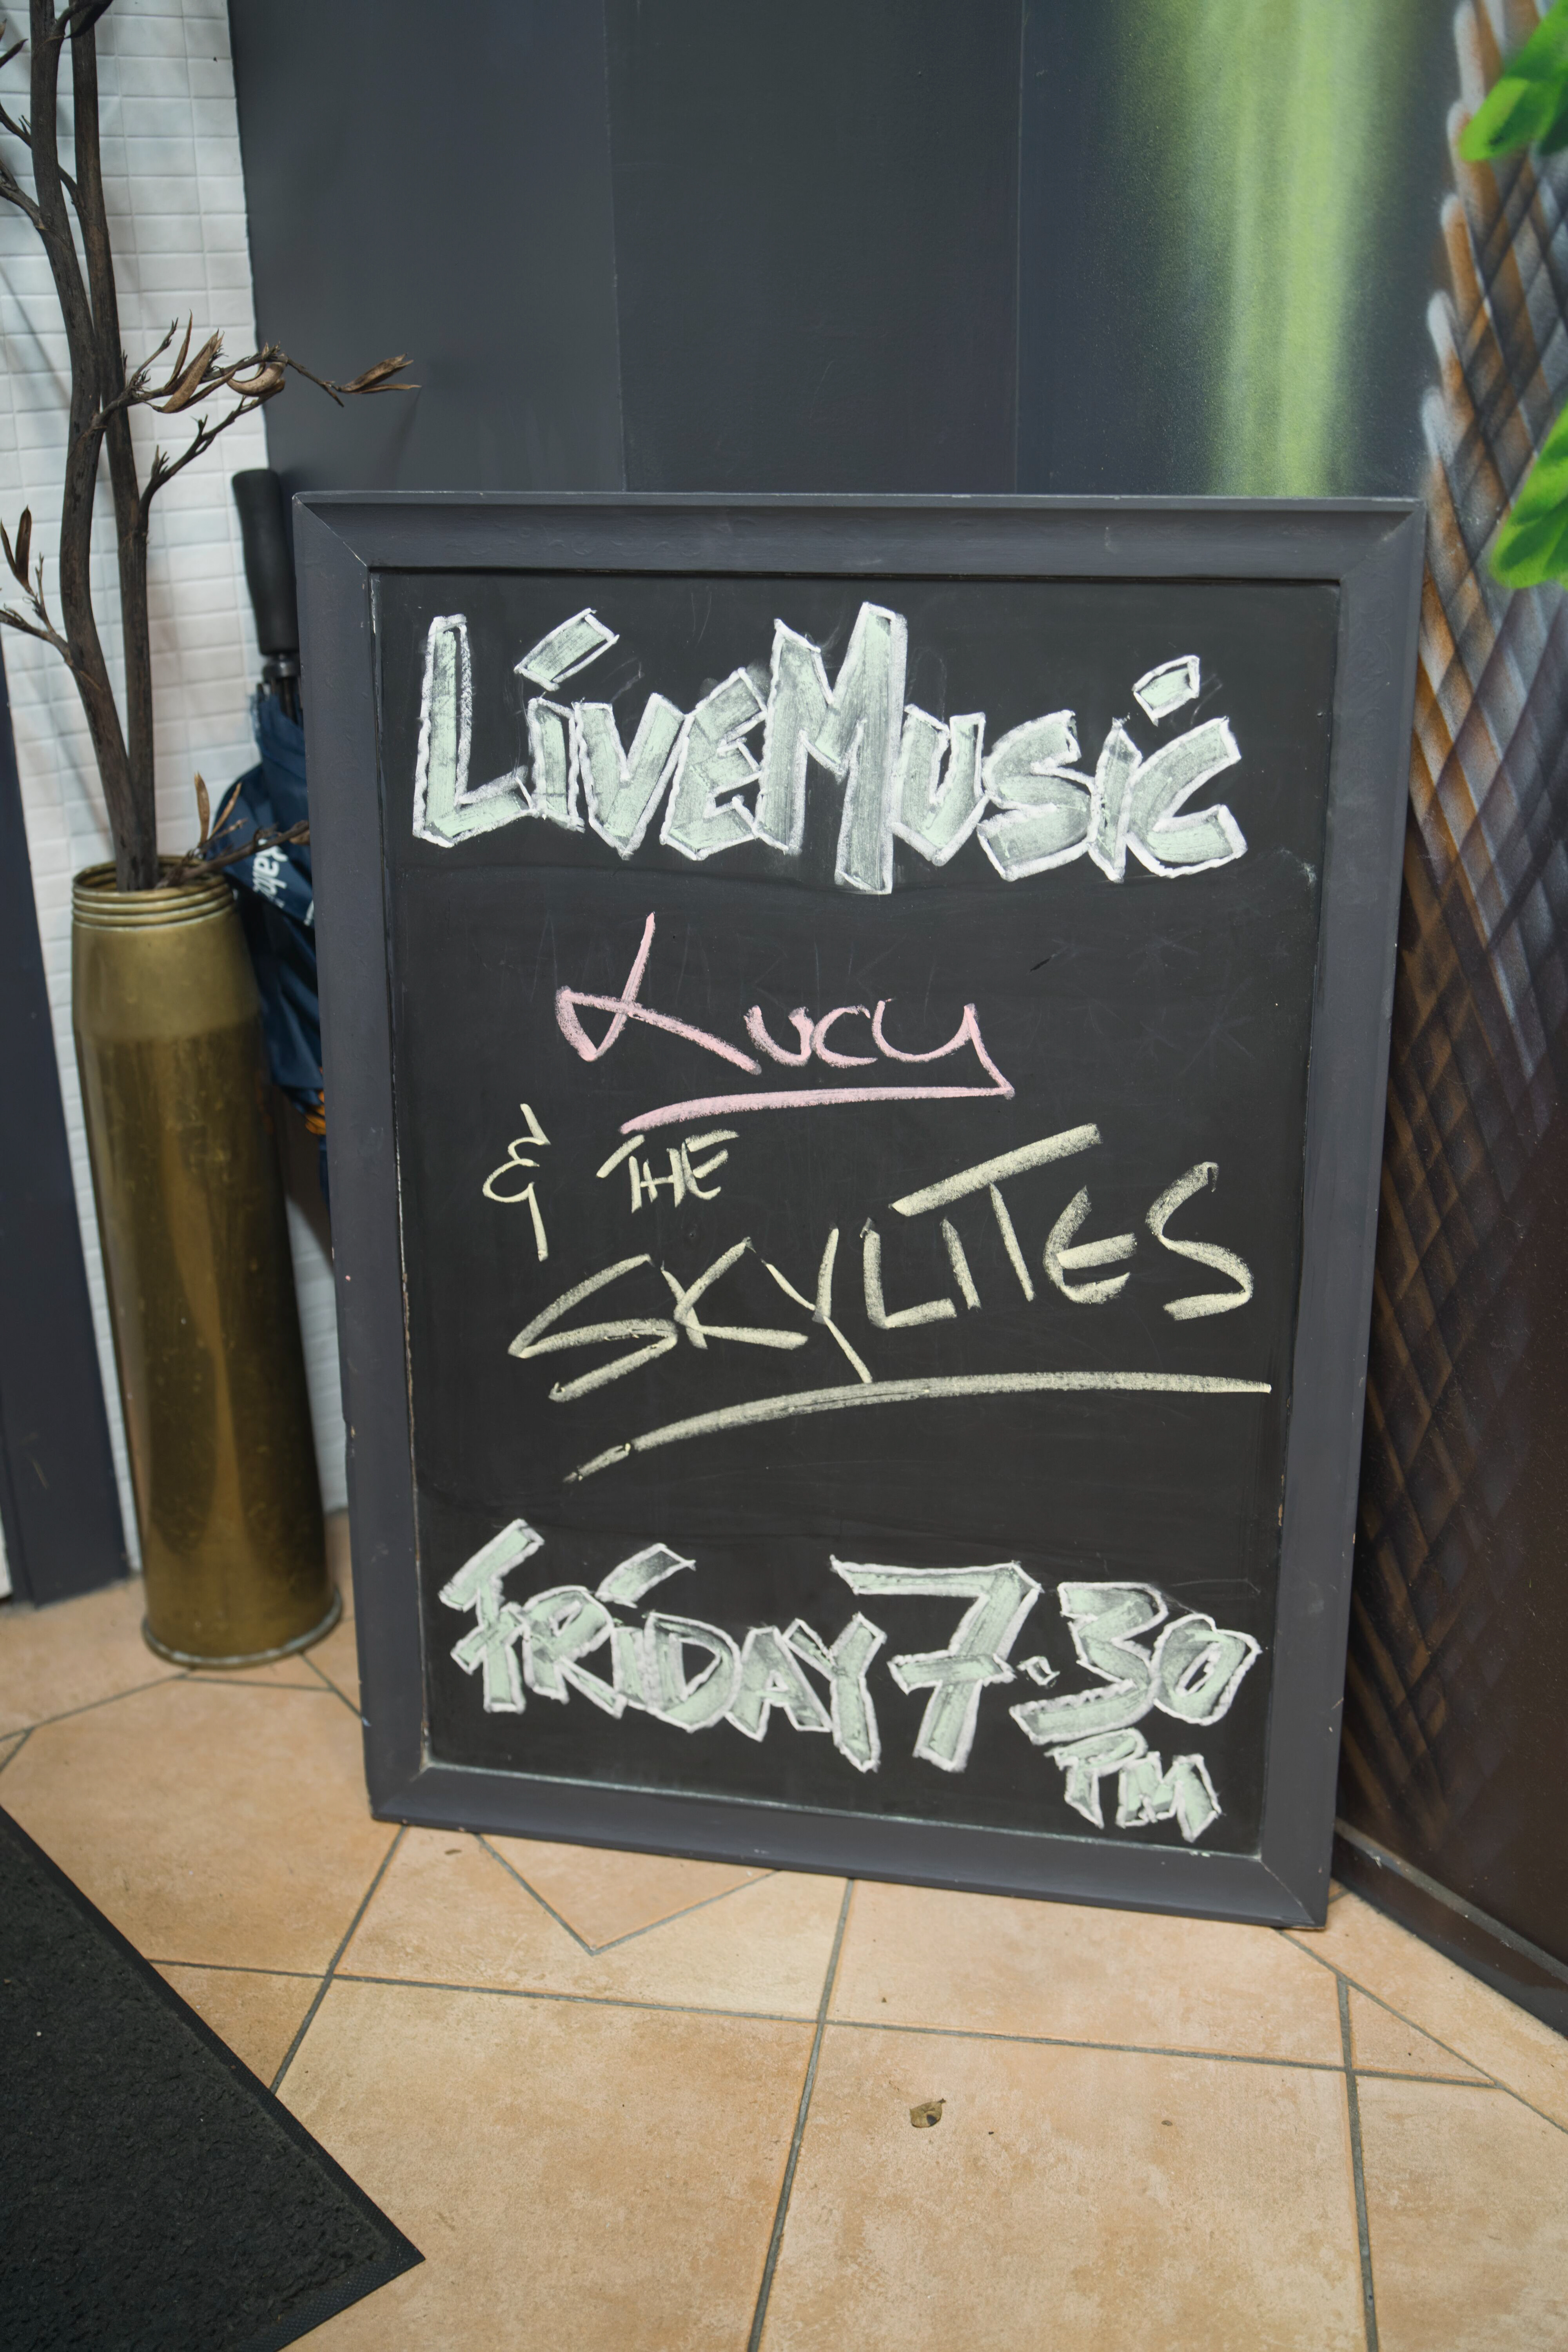 LiveMusic
Lucy
& THE
SKYLITES
FRiDAY 7.30
PM